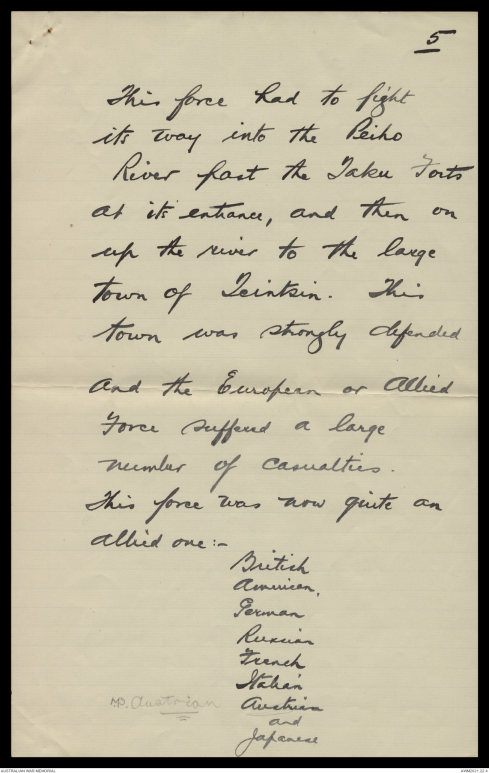 5
This force had to fight
its way into the Peiho
River past the Taku Forts
at its entrance, and then on
up the river to the large
town of Teintsin. This
town was strongly defended
and the European or Allied
Force suffered a large
number of casualties.
This force was now quite an
allied one:-
British
American,
German
Russian
French
Italian
Austrian
and
Japanese
Austrian
AUSTRALIAN WAR MEMORIAL